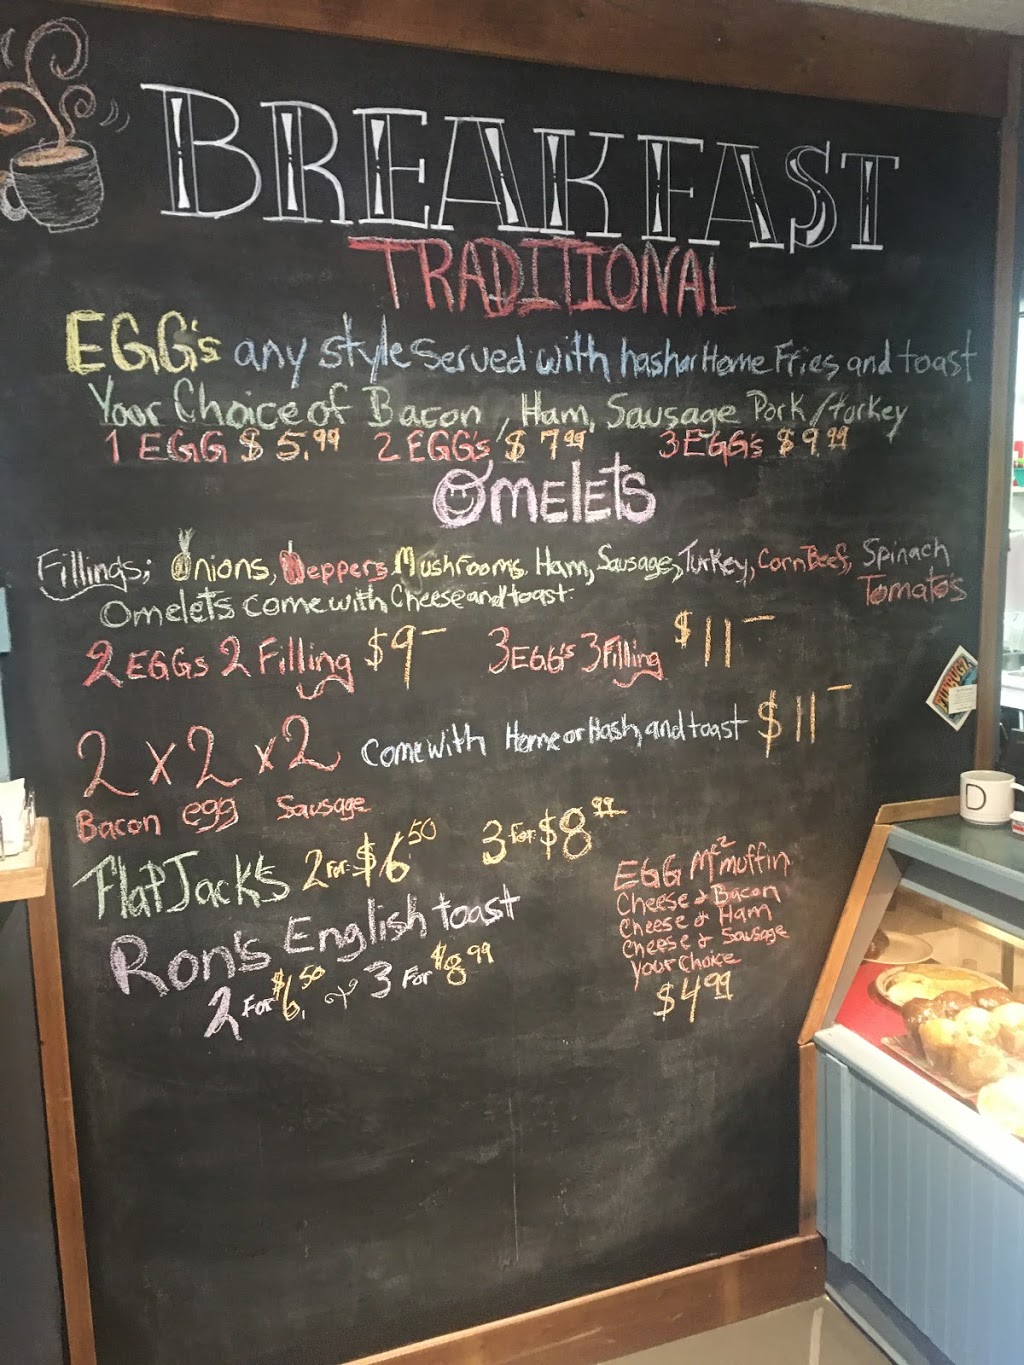 BREAKFAST
TRADITIONAL
EGG's any style served with hash or Home Fries and toast
Your Choice of Bacon, Ham, Sausage Pork/torkey
1 EGG $5.99 2 EGG's $7.99 3 EGG's $9.99
Omelets
Fillings; Onions, Peppers, Mushrooms. Ham, Sausage, Turkey, Corn Beef, Spinach
Tomato's
Omelets come with Cheese and toast.
2 EGGs 2 Filling $9- 3 EGG's 3 Filling $11-
2 x 2 x 2 come with Home or Hash, and toast $11-
Bacon egg Sausage
FlapJack's 2 For $6.50 3 For $8.99
Ron's English toast
2 For $6.50, or 3 For $8.99
EGG Mc2 muffin
Cheese & Bacon
Cheese & Ham
Cheese & Sausage
your choice
$4.99
D